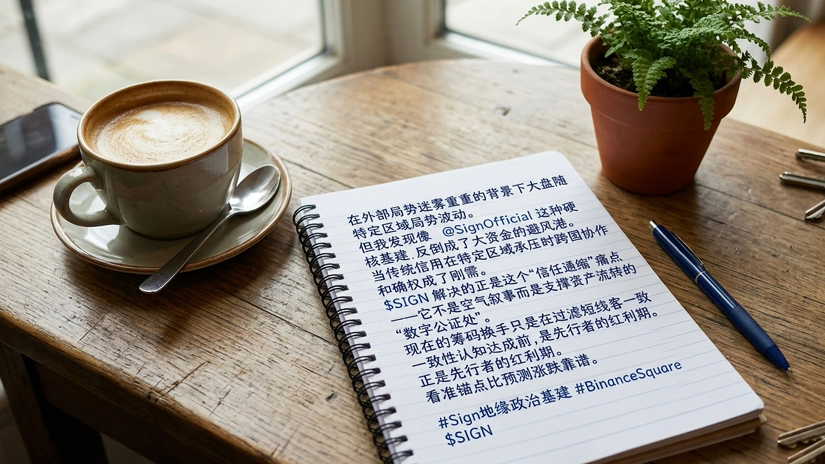 在外部局势迷雾重重的背景下大盘随
特定区域局势波动。
但我发现像 @SignOfficial 这种硬
核基建，反倒成了大资金的避风港。
当传统信用在特定区域承压时跨国协作
和确权成了刚需。
$SIGN 解决的正是这个“信任通缩”痛点
——它不是空气叙事而是支撑资产流转的
“数字公证处”。
现在的筹码换手只是在过滤短线客一致
一致性认知达成前，是先行者的红利期。
正是先行者的红利期。
看准锚点比预测涨跌靠谱。
#Sign地缘政治基建 #BinanceSquare
$SIGN